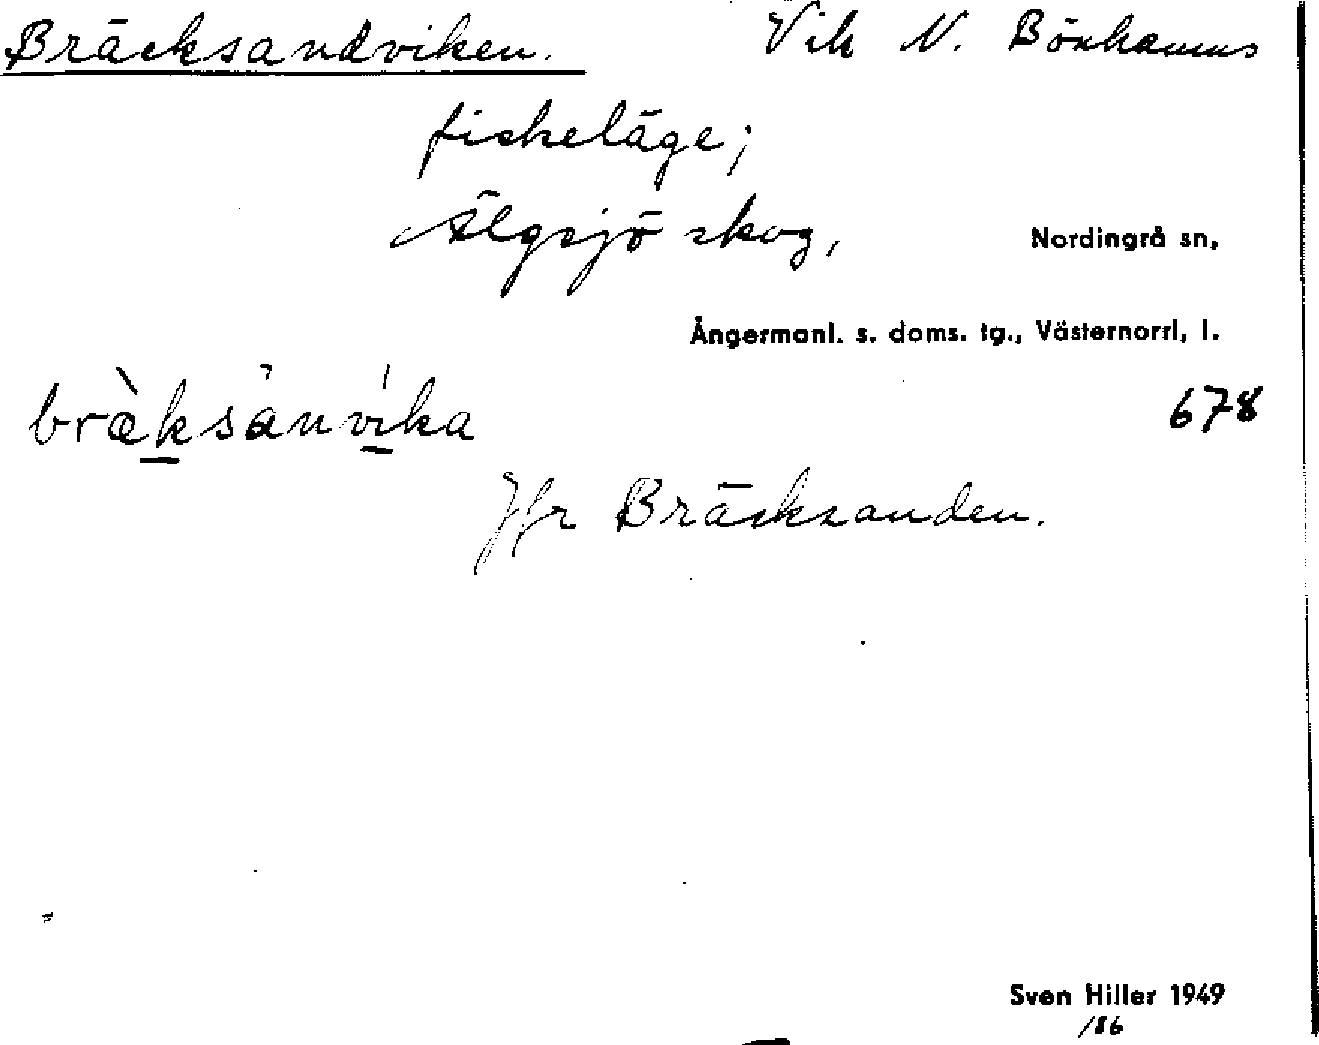 Bräcksandviken. Vik N. Bönhamns
fiskeläge;
Älgsjö skog, Nordingrå sn,
Ångermanl. s. doms. tg., Västernorrl, l.
bræ̀ksànvíka 678
Jfr Bräcksanden.
Sven Hiller 1949
/86